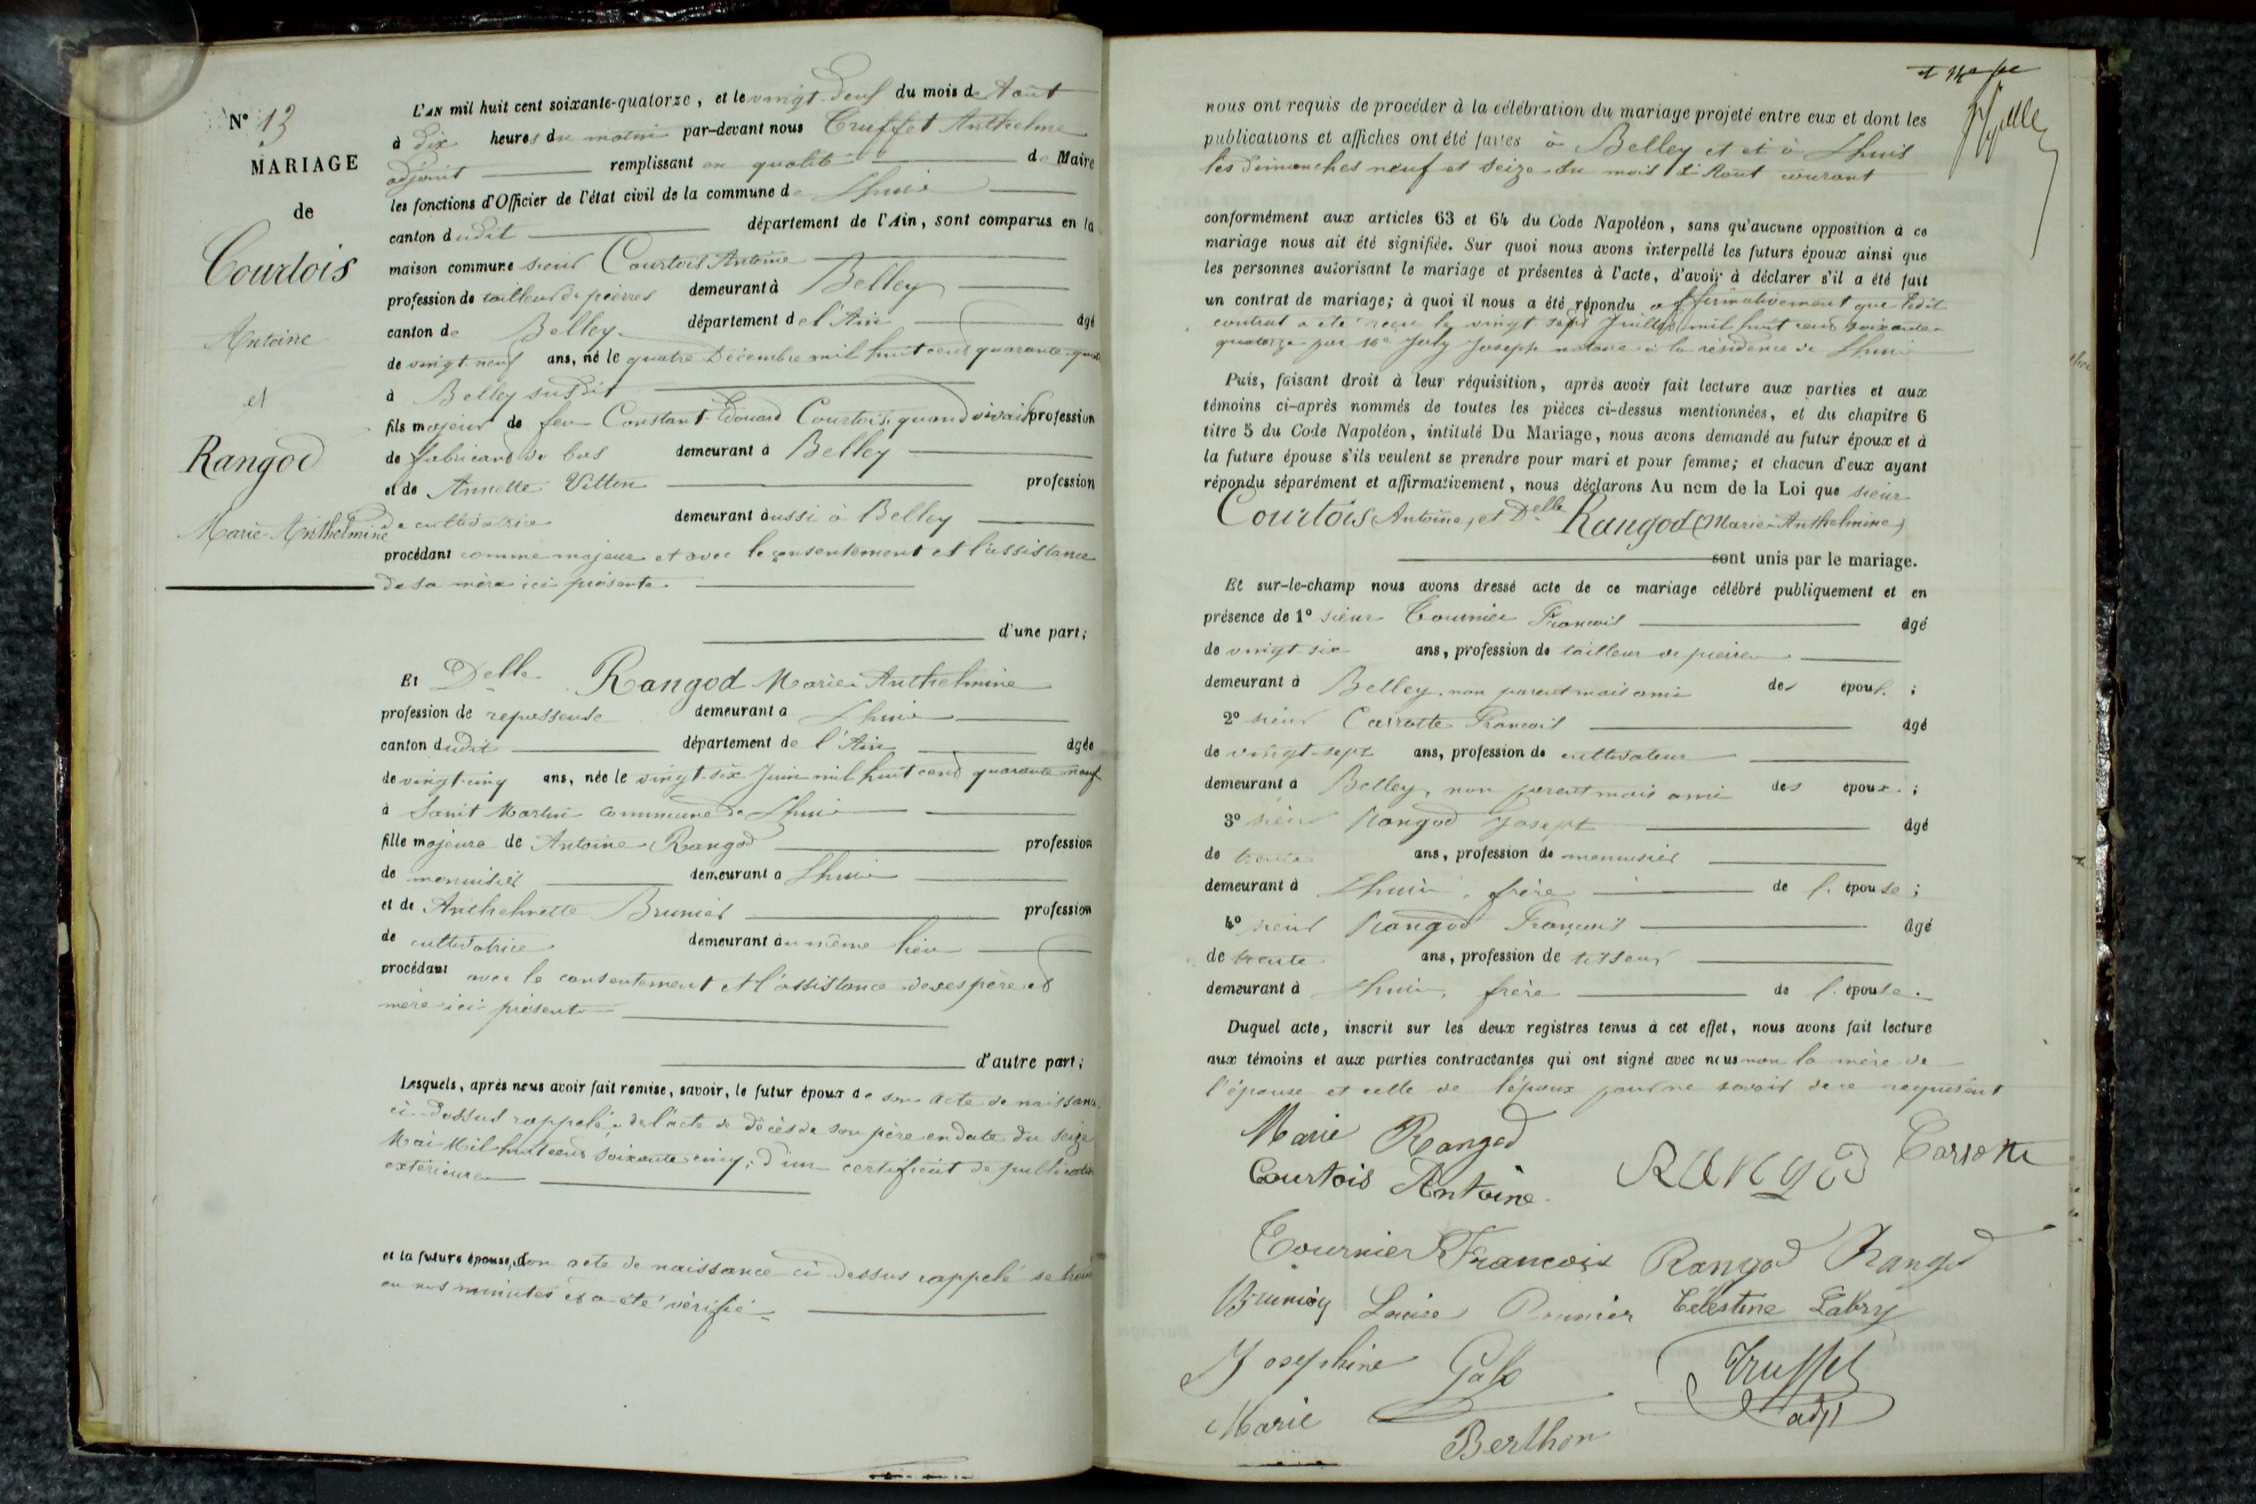 N° 13
MARIAGE
de
Courtois
Antoine
et
Rangod
Marie-Anthelmine
L'AN mil huit cent soixante-quatorze, et le vingt-neuf du mois de Août
à dix heures du matin par-devant nous Truffet Anthelme
adjoint remplissant en qualité de Maire
les fonctions d'Officier de l'état civil de la commune de Lhuis
canton dudit département de l'Ain, sont comparus en la
maison commune sieur Courtois Antoine
profession de tailleur de pierres demeurant à Belley
canton de Belley département de l'Ain âgé
de vingt-neuf ans, né le quatre Décembre mil huit cent quarante-quatre
à Belley susdit
fils majeur de feu Constant Edouard Courtois, quand vivait profession
de fabricant de bas demeurant à Belley
et de Annette Vitton profession
de cultivatrice demeurant aussi à Belley
procédant comme majeur et avec le consentement et l'assistance
de sa mère ici présente
d'une part;
Et Delle Rangod Marie Anthelmine
profession de repasseuse demeurant à Lhuis
canton dudit département de l'Ain âgée
de vingt-cinq ans, née le vingt-six Juin mil huit cent quarante-neuf
à Saint Martin commune de Lhuis
fille majeure de Antoine Rangod profession
de menuisier demeurant à Lhuis
et de Anthelmette Brunier profession
de cultivatrice demeurant au même lieu
procédant avec le consentement et l'assistance de ses père et
mère ici présents
d'autre part;
Lesquels, après nous avoir fait remise, savoir, le futur époux de son acte de naissance
ci-dessus rappelé, de l'acte de décès de son père en date du seize
Mai Mil huit cent soixante cinq; d'un certificat de publication
extérieure
et la future épouse, son acte de naissance ci-dessus rappelé se trouve
en nos minutes et a été vérifié
nous ont requis de procéder à la célébration du mariage projeté entre eux et dont les
publications et affiches ont été faites à Belley et et à Lhuis
les dimanches neuf et seize du mois d'Août courant
conformément aux articles 63 et 64 du Code Napoléon, sans qu'aucune opposition à ce
mariage nous ait été signifiée. Sur quoi nous avons interpellé les futurs époux ainsi que
les personnes autorisant le mariage et présentes à l'acte, d'avoir à déclarer s'il a été fait
un contrat de mariage; à quoi il nous a été répondu affirmativement que ledit
contrat a été reçu le vingt sept Juillet mil huit cent soixante-
quatorze par Me Joly Joseph notaire à la résidence de Lhuis
Puis, faisant droit à leur réquisition, après avoir fait lecture aux parties et aux
témoins ci-après nommés de toutes les pièces ci-dessus mentionnées, et du chapitre 6
titre 5 du Code Napoléon, intitulé Du Mariage, nous avons demandé au futur époux et à
la future épouse s'ils veulent se prendre pour mari et pour femme; et chacun d'eux ayant
répondu séparément et affirmativement, nous déclarons Au nom de la Loi que sieur
Courtois Antoine, et Delle Rangod (Marie-Anthelmine)
sont unis par le mariage.
Et sur-le-champ nous avons dressé acte de ce mariage célébré publiquement et en
présence de 1° sieur Tournier François âgé
de vingt six ans, profession de tailleur de pierre
demeurant à Belley, non parent mais ami des époux;
2° sieur Carrotte François âgé
de vingt-sept ans, profession de cultivateur
demeurant à Belley, non parent mais ami des époux;
3° sieur Rangod Joseph âgé
de trente ans, profession de menuisier
demeurant à Lhuis, frère de l'épouse;
4° sieur Rangod François âgé
de trente ans, profession de tisseur
demeurant à Lhuis, frère de l'épouse.
Duquel acte, inscrit sur les deux registres tenus à cet effet, nous avons fait lecture
aux témoins et aux parties contractantes qui ont signé avec nous non la mère de
l'épouse et celle de l'époux pour ne savoir de ce requérant
Marie Rangod
Courtois Antoine RANGOD Carrotte
Tournier François Rangod Rangod
Louise Celestine Labry
Josephine Truffet
adjt
Marie Berthon